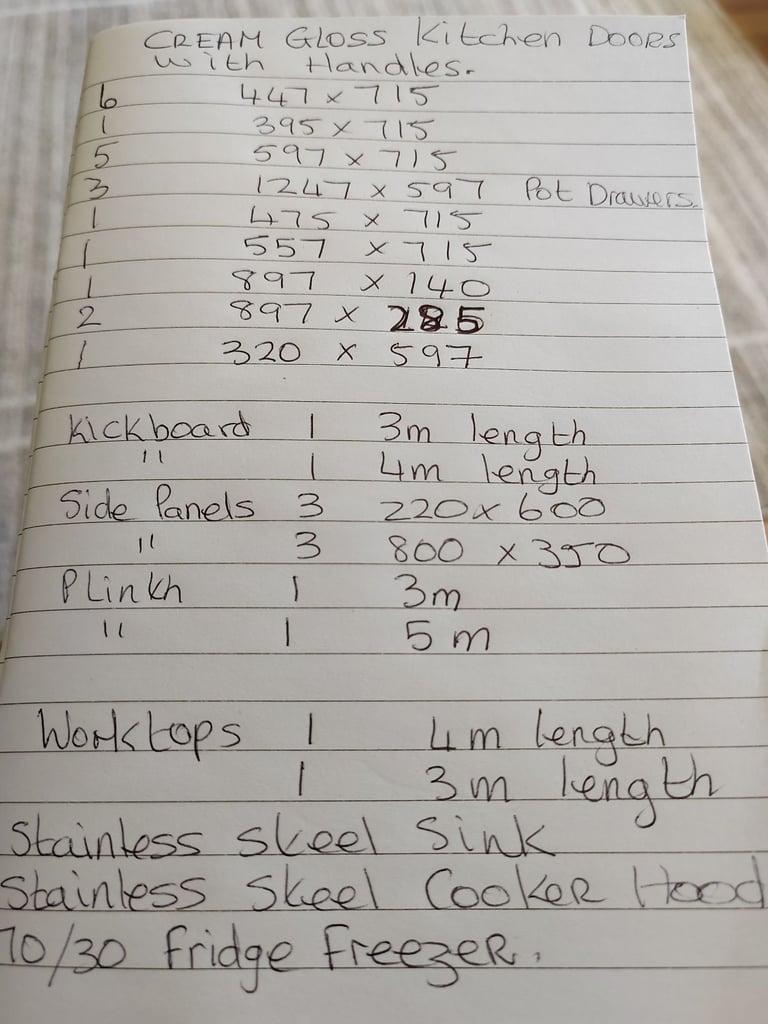 CREAM GLOSS Kitchen DOORS
with Handles.
6 447 x 715
1 395 x 715
5 597 x 715
3 1247 x 597 Pot Drawers.
1 475 x 715
1 557 x 715
1 897 x 140
2 897 x 285
1 320 x 597
Kickboard 1 3m length
" 1 4m length
Side Panels 3 220 x 600
" 3 800 x 350
PLinth 1 3m
" 1 5m
Worktops 1 4m length
1 3m length
Stainless steel Sink
Stainless Steel Cooker Hood
70/30 fridge freezer.